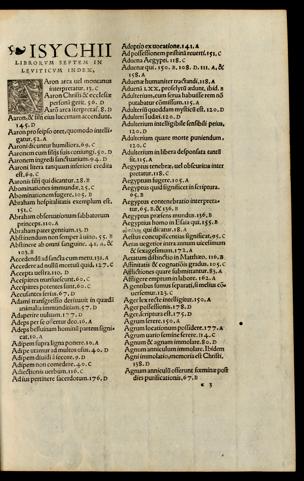 ISYCHII
LIBRORVM SEPTEM IN
LEVITICVM INDEX,
Aaron arca uel montanus
interpretatur. 13. C
Aaron Christi & ecclesiæ
personā gerit. 56. D
Aarō arca iterpretaf. 8. D
Aaron, & filii eius lucernam accendunt.
145. D
Aaron pro seipso oret, quomodo intelli-
gatur. 52. A
Aaroni dicuntur humiliora. 69. C
Aaronem cum filiis suis coniungi. 50. D
Aaronem ingredi sanctuarium. 94. D
Aaron litera tanquam inferiori credita
est. 69. C
Aaronis filii qui dicantur. 28. B
Abominationes immundæ. 25. C
Abominationem fugere. 105. D
Abraham hospitalitatis exemplum est.
151. C
Abraham obseruationum sabbatorum
princeps. 110. A
Abraham pater gentium. 13. D
Abstinendum non semper à uino. 55. B
Abstinere ab omni sanguine. 41. A, &
103. B
Accendendū ad sancta cum metu. 131. A
Accedere ad nostū mortui quid. 127. C
Accepta uestra. 110. D
Accipitres contumaces sunt. 60. C
Accipitres potentes sunt. 60. C
Accusantes ferius. 67. D
Adami transgressio deriuauit in quædā
animalia immunditiam. 57. D
Adaperire uuluam. 177. D
Adeps per se offertur deo. 16. A
Adeps bestiarum hominū partem signi-
cat. 10. A
Adipem supra ligna ponere. 10. A
Adipe utemur ad multos usus. 40. D
Adipem diuidi à iecore. 9. D
Adipem non comedere. 40. C
Adiectionis uerbum. 116. C
Adius pertinere sacerdotum. 176. D
Adoptio ex uocatione. 141. A
Ad possessionem pristinā reuerti. 151. C
Aduena Aegypti. 118. C
Aduenæ qui. 150. B. 108. D. 111. A, &
158. A
Aduenæ humaniter tractandi. 118. A
Aduenā LXX, proselytū ædunt, ibid. B
Adulterium, cum serua habuisse rem nō
putabat cōmissum. 115. A
Adulteriū quoddam mystice est. 120. D
Adulteri Iudæi. 120. D
Adulterium intelligibile sensibili peius,
120. D
Adulterium quare morte puniendum.
120. C
Adulterium in libera desponsata tantū
fit. 115. A
Aegyptus tenebræ, uel obscuritas inter
pretatur. 118. C
Aegyptum fugere. 105. A
Aegyptus quid significet in scriptura.
65. B
Aegyptus contenebratio interpreta-
tur. 65. B, & 156. B
Aegyptus præsens mundus. 156. B
Aegyptius homo in Esaia qui. 155. B
qui dicatur. 18. A
Aestus concupiscentias significat. 95. C
Aetas uegetior intra annum uicesimum
& sexagesimum. 172. A
Aetatum distinctio in Matthæo. 116. B
Affinitatis & cognatiōis gradus. 105. C
Afflictiones quare submittantur. 83. A
Affligere emptum in labore. 162. A
A gentibus sumus separati, si melius cō-
uersemur. 123. C
Ager lex recte intelligitur. 150. A
Ager possessionis. 178. D
Ager scriptura est. 175. D
Agnum ferre. 150. A
Agnum locationum possidere. 177. A
Agnum uario semine serere. 114. C
Agnum & agnam immolare. 80. D
Agnum anniculum immolare. Ibidem
Agni immolatio, memoria est Christi,
138. D
Agnum anniculū offerunt fœminæ post
dies purificationis. 67. B